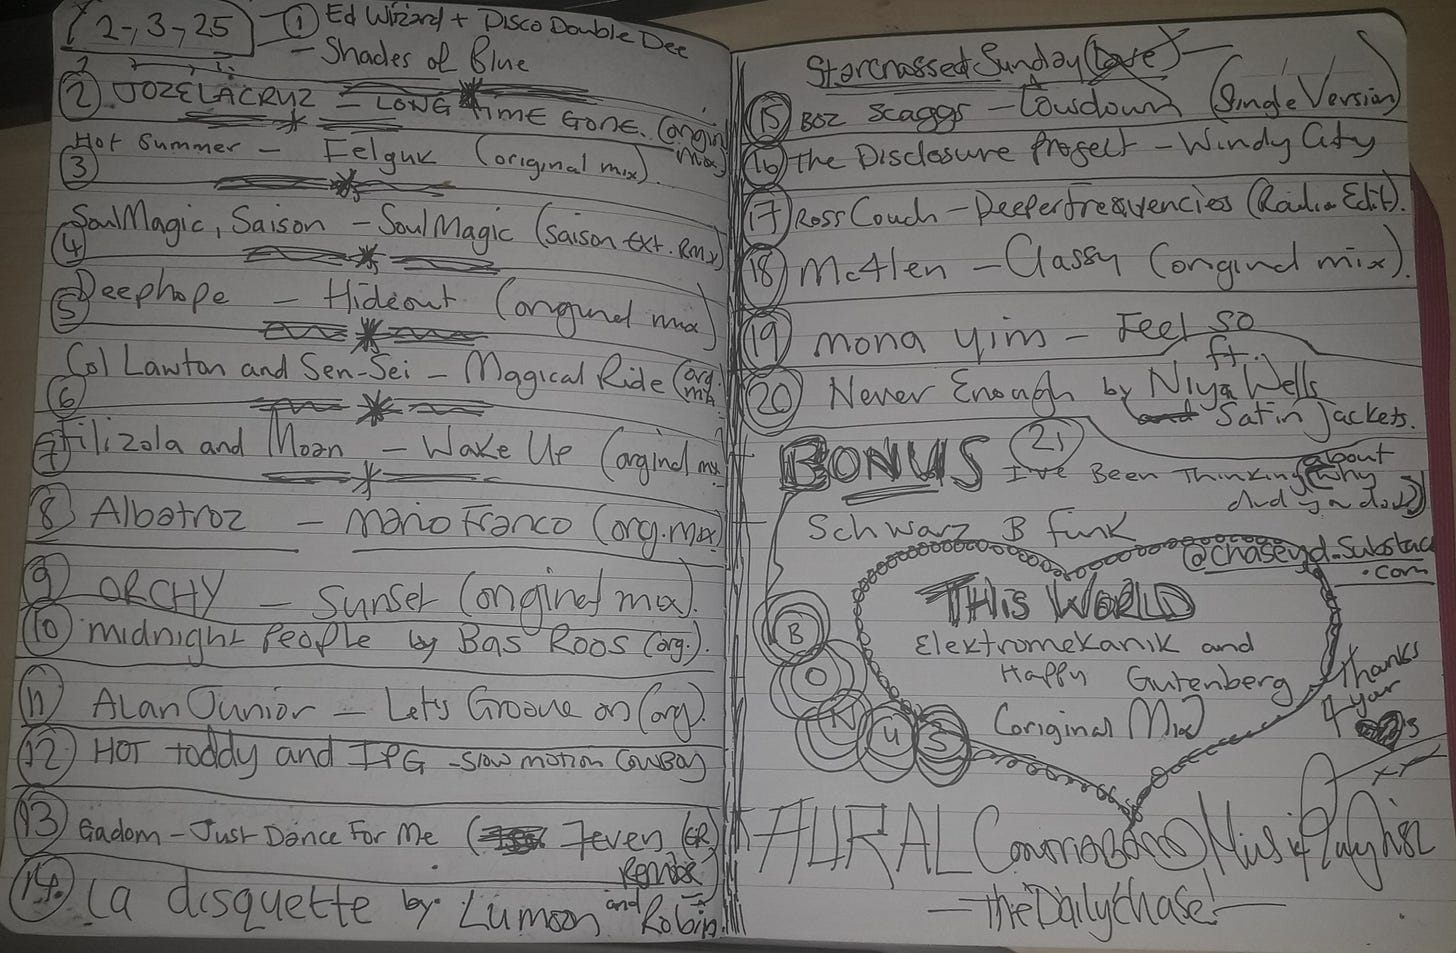 2-,3-,25
① Ed Wizard + Disco Double Dee
- Shades of Blue
② JOZELACRUZ - LONG TIME GONE. (origin mix)
Hot Summer - Felguk (original mix).
③
SoulMagic, Saison - SoulMagic (Saison ext. Rmx)
④
Deephope - Hideout (original mix)
⑤
Col Lawton and Sen-Sei - Magical Ride (org. mix
⑥
⑦ Filizola and Moan - Wake Up (original mx
⑧ Albatroz - Mario Franco (org.mix)
⑨ ORCHY - Sunset (original mix).
⑩ midnight People by Bas Roos (org.).
⑪ Alan Junior - Let's Groove on (org).
⑫ HOT toddy and IPG - Slow motion Cowboy
⑬ Gadom - Just Dance For Me ( 7even (GR) Remix)
⑭ La disquette by Lumoon and Robin
Starcrassed Sunday (Love)
⑮ BOZ Scaggs - Lowdown (Single Version)
⑯ the Disclosure Project - Windy City
⑰ Ross Couch - Deeper Frequencies (Radio Edit).
⑱ Mc4len - Classy (original mix).
⑲ mona yim - Feel so
⑳ Never Enough by ft. Niya Wells
and Satin Jackets.
BONUS ㉑ I've Been Thinking about
(why
Schwarz B Funk
@chaseyd.Substack
.com
THis WORLD
Elektromekanik and
Happy Gutenberg
(original Mix)
B
O
N
U
S
Thanks
4 your
s
xx
AURAL Music Playlist
- theDailyChase! -